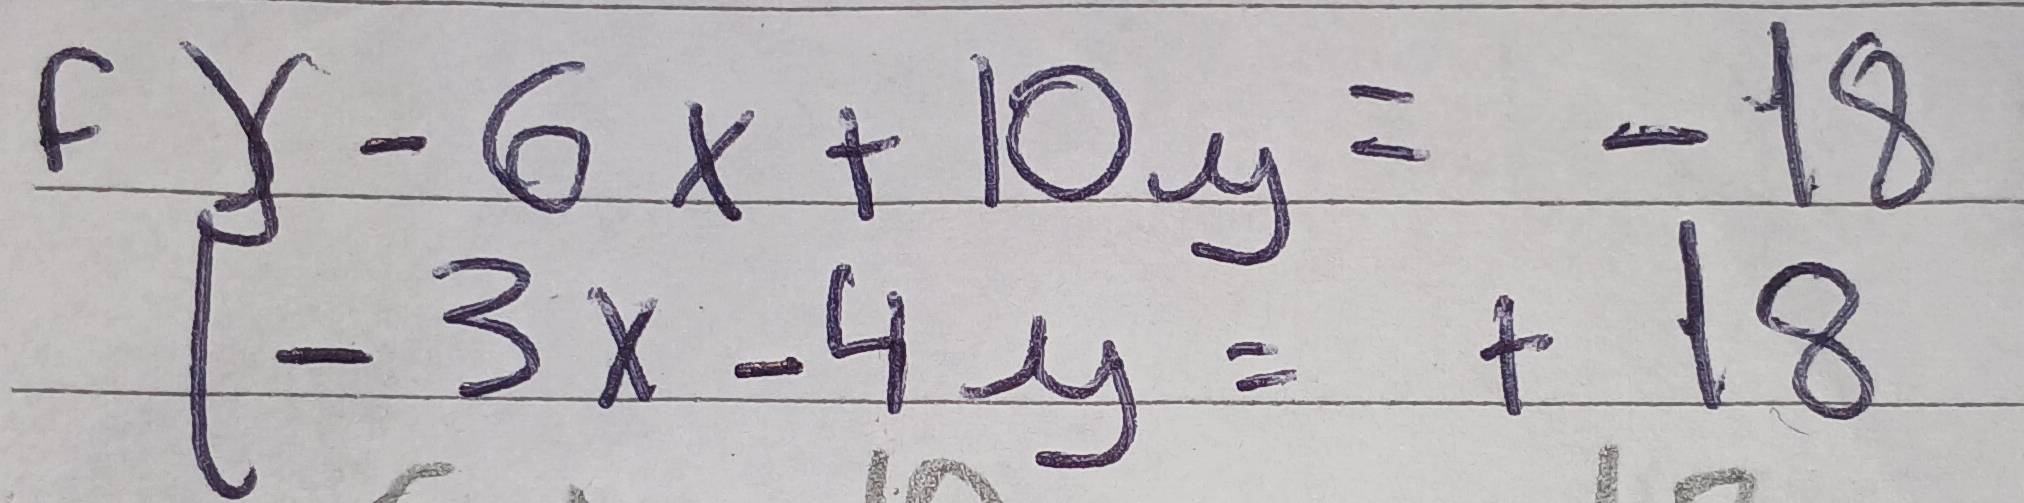 F
- 6x + 10y = - 18
- 3x - 4y = + 18